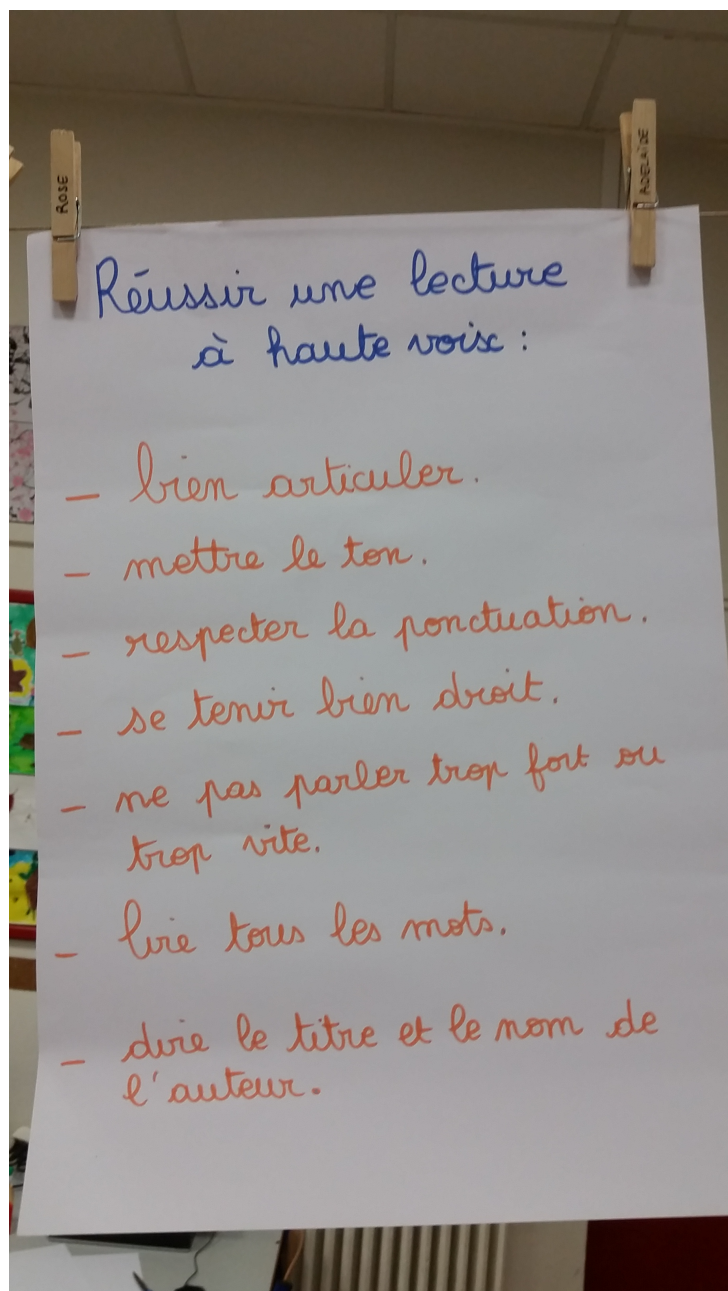 ROSE
ADELAÏDE
Réussir une lecture
à haute voix :
- bien articuler.
- mettre le ton.
- respecter la ponctuation.
- se tenir bien droit.
- ne pas parler trop fort ou
trop vite.
- lire tous les mots.
- dire le titre et le nom de
l'auteur.